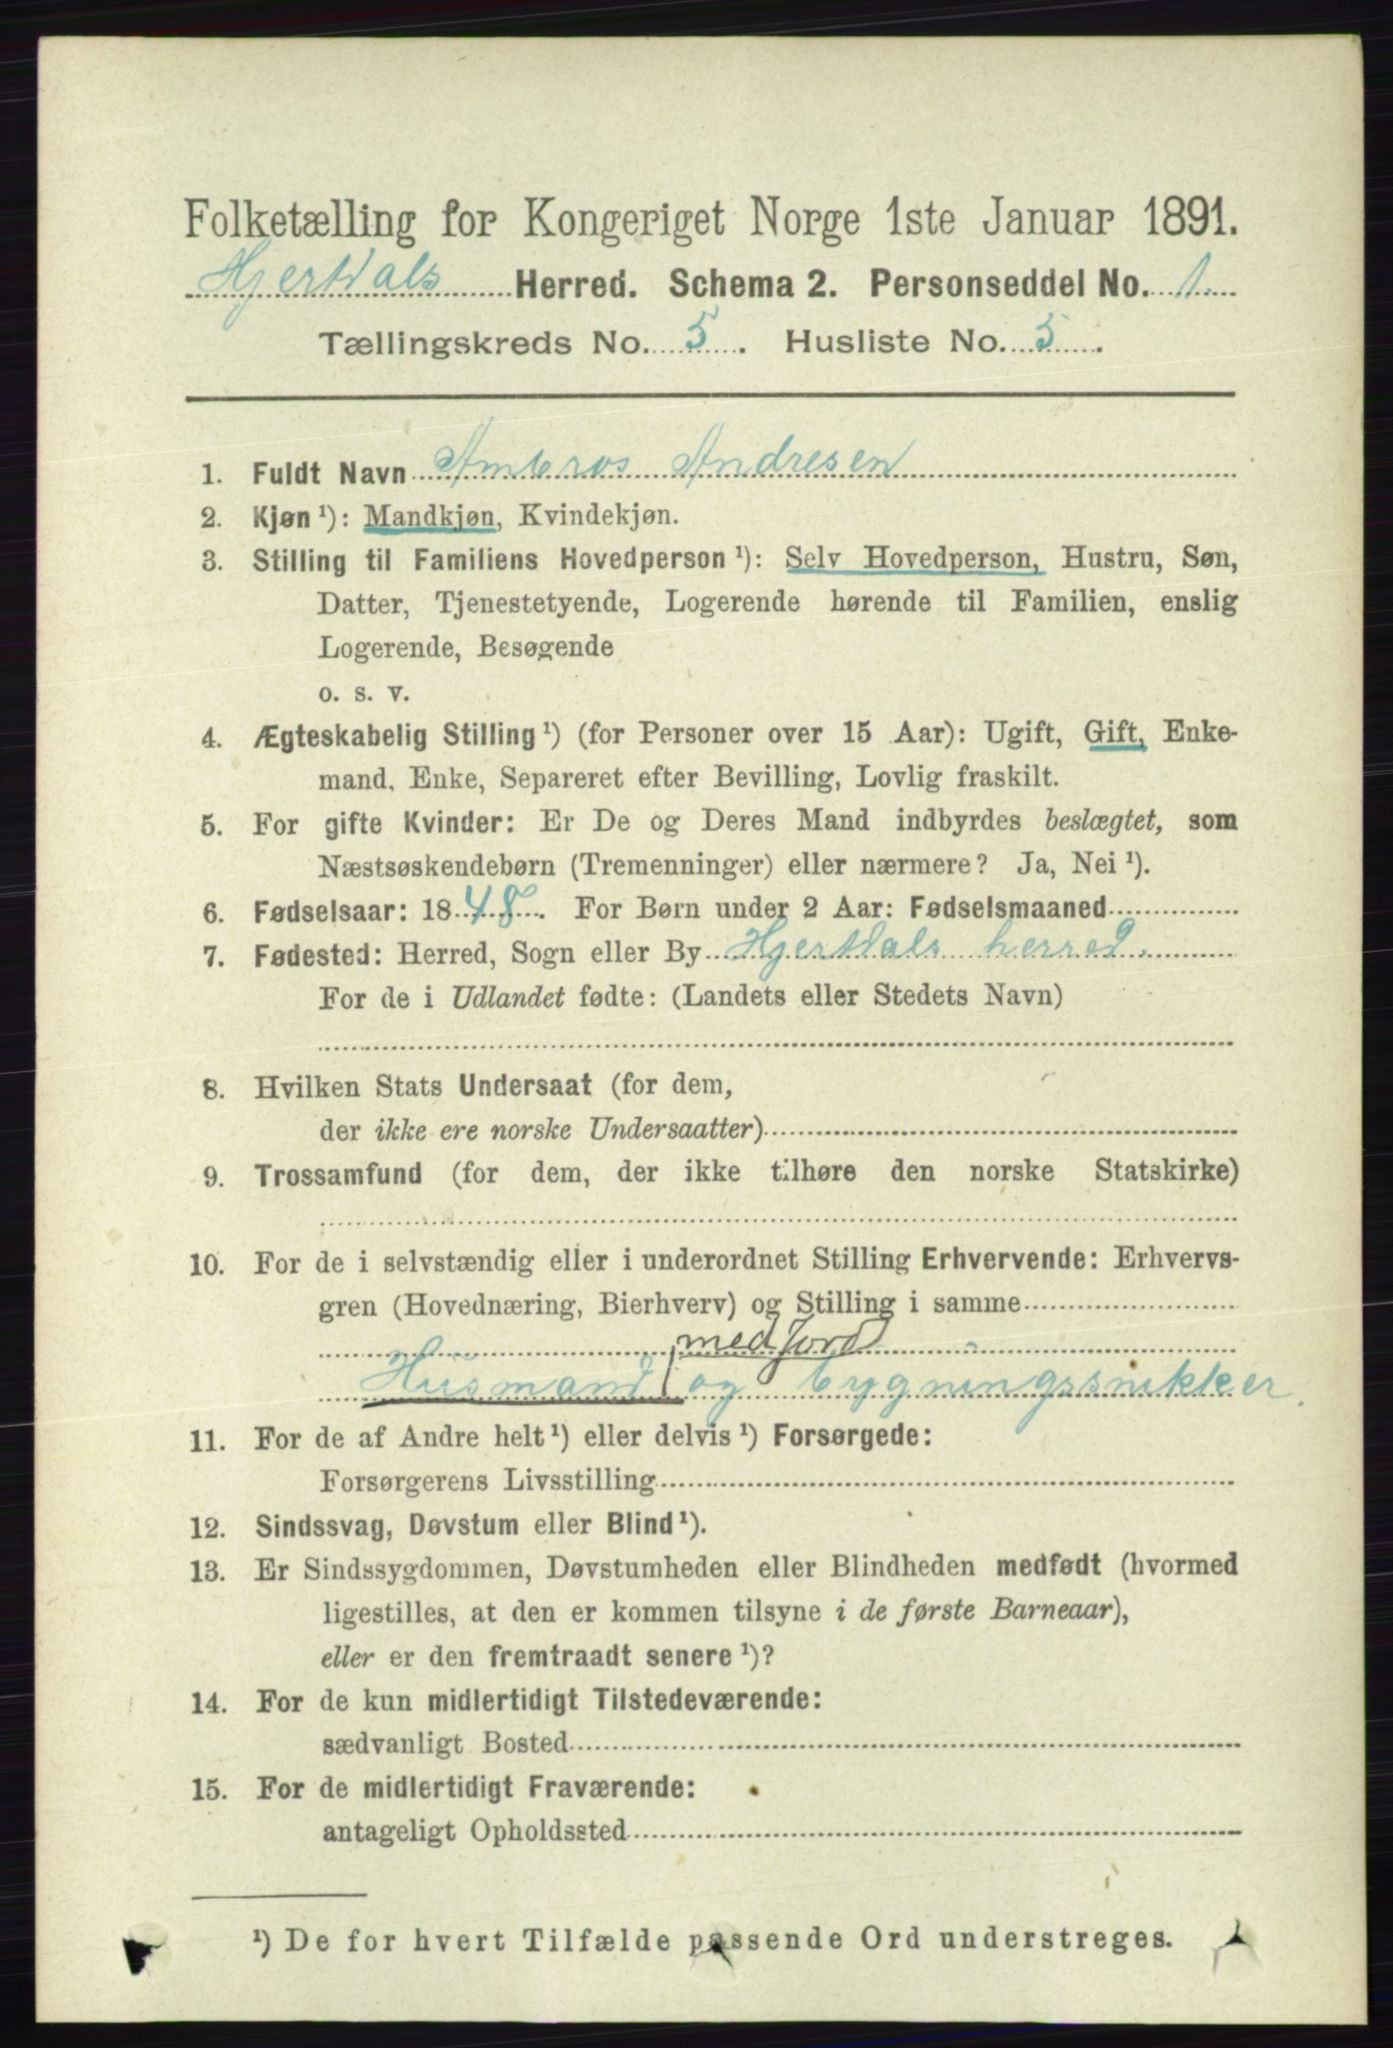 Folketælling for Kongeriget Norge 1ste Januar 1891.
Hjertdals Herred. Schema 2. Personseddel No. 1.
Tællingskreds No. 5. Husliste No. 5.
1. Fuldt Navn Ambros Andresen
2. Kjøn ¹): Mandkjøn, Kvindekjøn.
3. Stilling til Familiens Hovedperson ¹): Selv Hovedperson, Hustru, Søn,
Datter, Tjenestetyende, Logerende hørende til Familien, enslig
Logerende, Besøgende
o. s. v.
4. Ægteskabelig Stilling ¹) (for Personer over 15 Aar): Ugift, Gift, Enke-
mand, Enke, Separeret efter Bevilling, Lovlig fraskilt.
5. For gifte Kvinder: Er De og Deres Mand indbyrdes beslægtet, som
Næstsøskendebørn (Tremenninger) eller nærmere? Ja, Nei ¹).
6. Fødselsaar: 1848. For Børn under 2 Aar: Fødselsmaaned
7. Fødested: Herred, Sogn eller By Hjertdals herred.
For de i Udlandet fødte: (Landets eller Stedets Navn)
8. Hvilken Stats Undersaat (for dem,
der ikke ere norske Undersaatter)
9. Trossamfund (for dem, der ikke tilhøre den norske Statskirke)
10. For de i selvstændig eller i underordnet Stilling Erhvervende: Erhvervs-
gren (Hovednæring, Bierhverv) og Stilling i samme
med jord
Husmand og bygningssnikker.
11. For de af Andre helt ¹) eller delvis ¹) Forsørgede:
Forsørgerens Livsstilling
12. Sindssvag, Døvstum eller Blind ¹).
13. Er Sindssygdommen, Døvstumheden eller Blindheden medfødt (hvormed
ligestilles, at den er kommen tilsyne i de første Barneaar),
eller er den fremtraadt senere ¹)?
14. For de kun midlertidigt Tilstedeværende:
sædvanligt Bosted
15. For de midlertidigt Fraværende:
antageligt Opholdssted
¹) De for hvert Tilfælde passende Ord understreges.